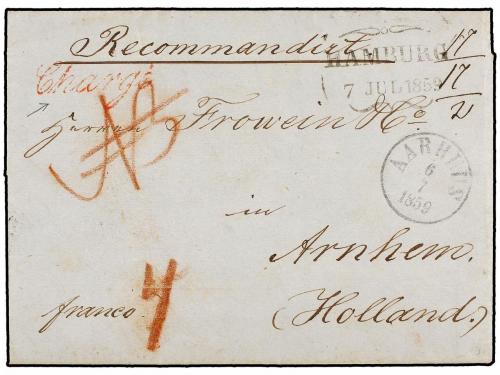 Recommandirt
HAMBURG
7 JUL 1859
17
17
2
Chargé
NB
Herren Frowein & Co
AARHUUS
6
7
1859
in
Arnhem.
(Holland.)
franco
4